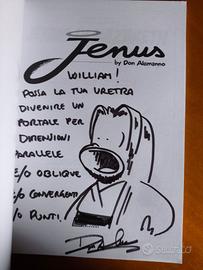 Jenus
by Don Alemanno
WILLIAM!
POSSA LA TUA URETRA
DIVENIRE UN
PORTALE PER
DIMENSIONI
PARALLELE
E/O OBLIQUE
E/O CONVERGENTI
E/O PUNTI.
subito.it